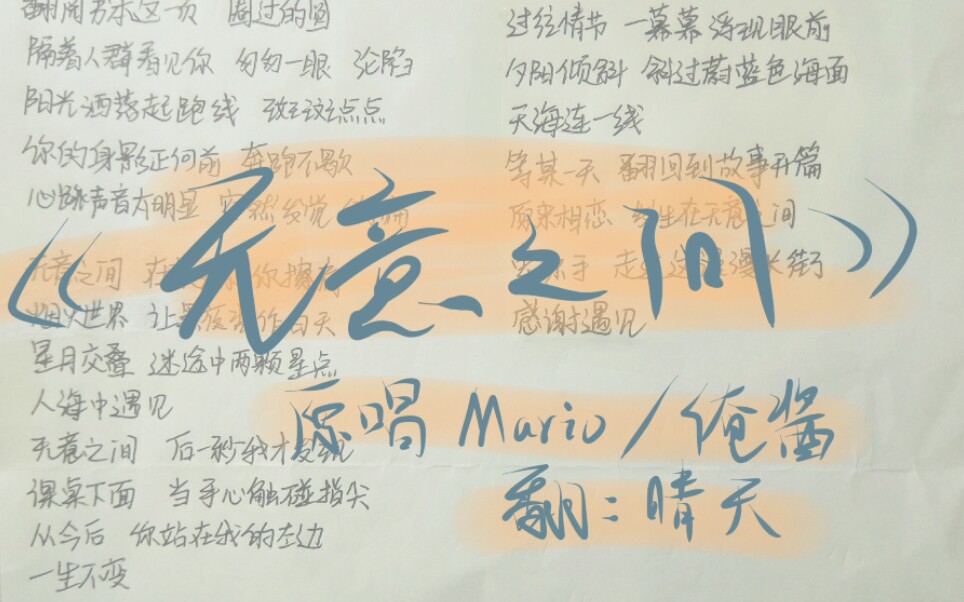 翻阅书本这一页 圈过的圆
隔着人群看见你 匆匆一眼 沦陷
阳光洒落起跑线
你的身影正向前 奔跑不歇
心跳声音太明显 突然发觉
无意之间
烟火世界 让黑夜
星月交叠 迷途中两颗星点
人海中遇见
无意之间 后一秒我才发现
课桌下面 当手心触碰指尖
从今后 你站在我的左边
一生不变
过往情节 一幕幕浮现眼前
夕阳倾斜 斜过蔚蓝色海面
天海连一线
等某一天 翻回到故事开篇
原来相恋 在无意之间
手 走过 漫长街
感谢遇见
《无意之间》
原唱 Mario/俺酱
翻:晴天